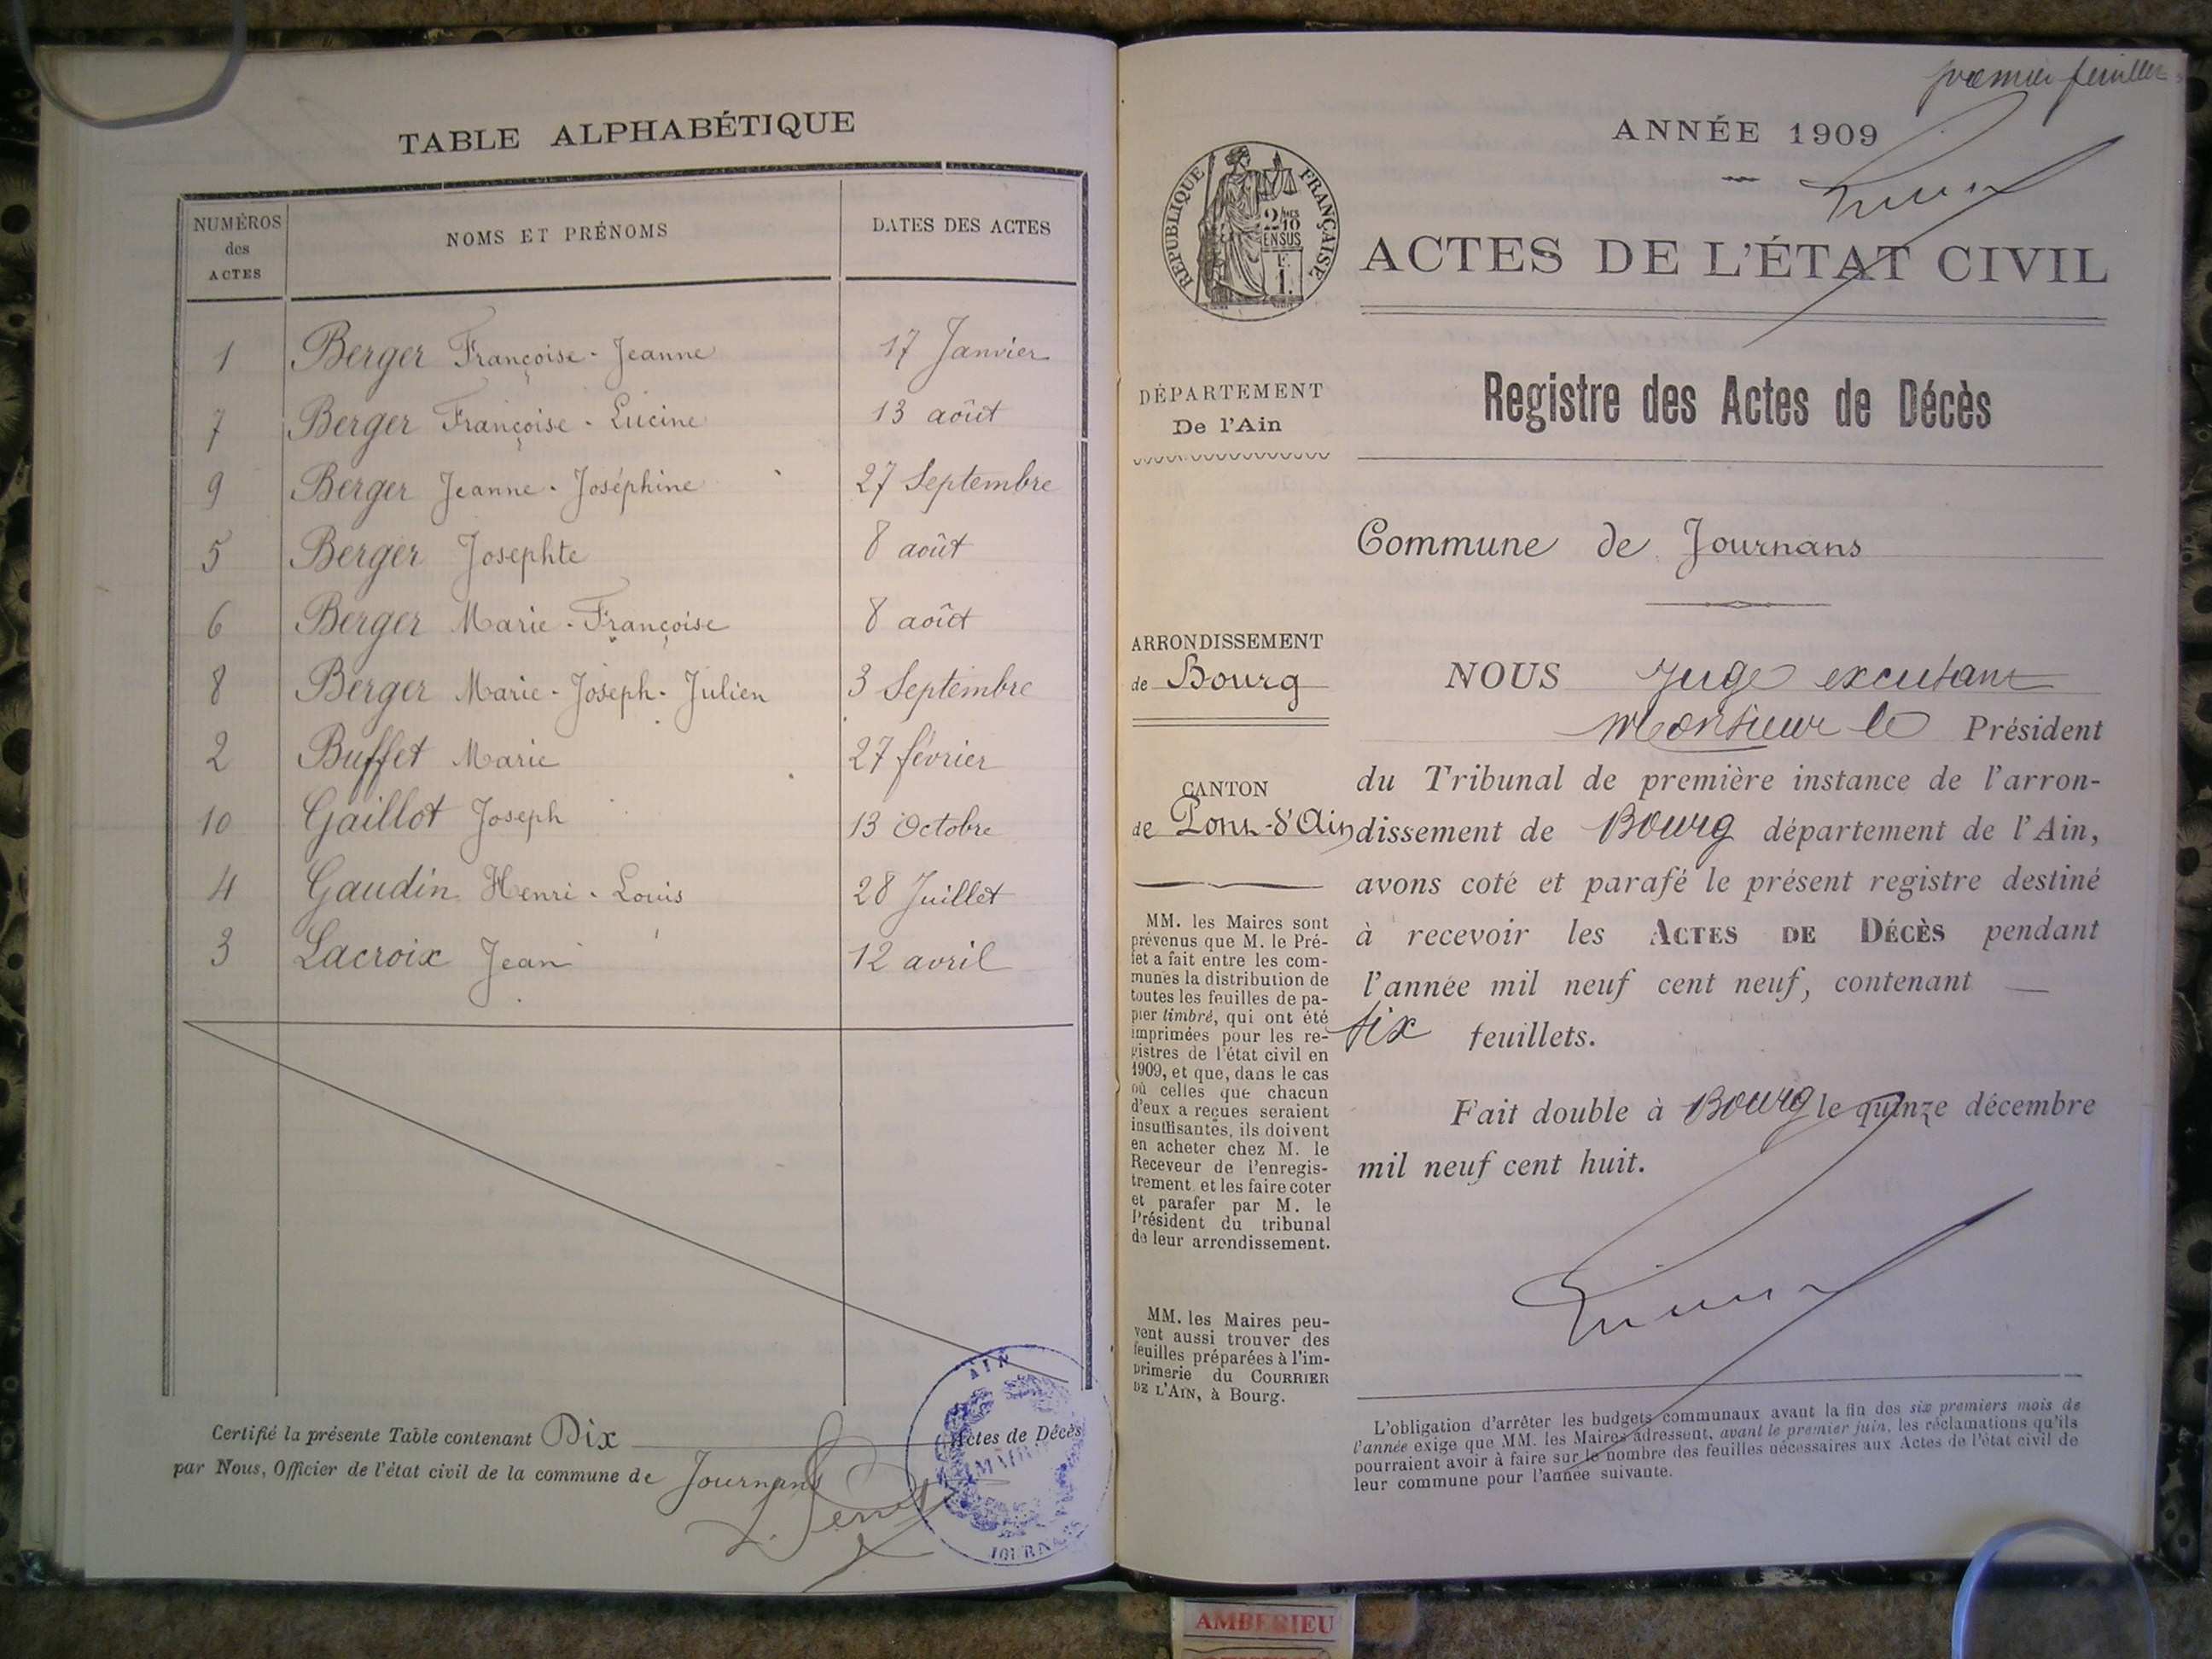 TABLE ALPHABÉTIQUE
NUMÉROS des ACTES NOMS ET PRÉNOMS DATES DES ACTES
1 Berger Françoise-Jeanne 17 Janvier
7 Berger Françoise-Lucine 13 août
9 Berger Jeanne-Joséphine 27 Septembre
5 Berger Josephte 8 août
6 Berger Marie-Françoise 8 août
8 Berger Marie-Joseph-Julien 3 Septembre
2 Buffet Marie 27 février
10 Gaillot Joseph 13 Octobre
4 Gaudin Henri-Louis 28 Juillet
3 Lacroix Jean 12 avril
Certifié la présente Table contenant Dix Actes de Décès
par Nous, Officier de l'état civil de la commune de Journans
AIN
MAIRIE
premier feuillet
ANNÉE 1909
RÉPUBLIQUE FRANÇAISE
ACTES DE L'ÉTAT CIVIL
DÉPARTEMENT
De l'Ain
Registre des Actes de Décès
Commune de Journans
ARRONDISSEMENT
de Bourg
CANTON
de Pont-d'Ain
MM. les Maires sont
prévenus que M. le Pré-
fet a fait entre les com-
munes la distribution de
toutes les feuilles de pa-
pier timbré, qui ont été
imprimées pour les re-
gistres de l'état civil en
1909, et que, dans le cas
où celles que chacun
d'eux a reçues seraient
insuffisantes, ils doivent
en acheter chez M. le
Receveur de l'enregis-
trement et les faire coter
et parafer par M. le
Président du tribunal
de leur arrondissement.
MM. les Maires peu-
vent aussi trouver des
feuilles préparées à l'im-
primerie du COURRIER
DE L'AIN, à Bourg.
NOUS Juge excusant
Monsieur le Président
du Tribunal de première instance de l'arron-
dissement de Bourg département de l'Ain,
avons coté et parafé le présent registre destiné
à recevoir les ACTES DE DÉCÈS pendant
l'année mil neuf cent neuf, contenant
six feuillets.
Fait double à Bourg le quinze décembre
mil neuf cent huit.
L'obligation d'arrêter les budgets communaux avant la fin des six premiers mois de
l'année exige que MM. les Maires adressent, avant le premier juin, les réclamations qu'ils
pourraient avoir à faire sur le nombre des feuilles nécessaires aux Actes de l'état civil de
leur commune pour l'année suivante.
AMBERIEU